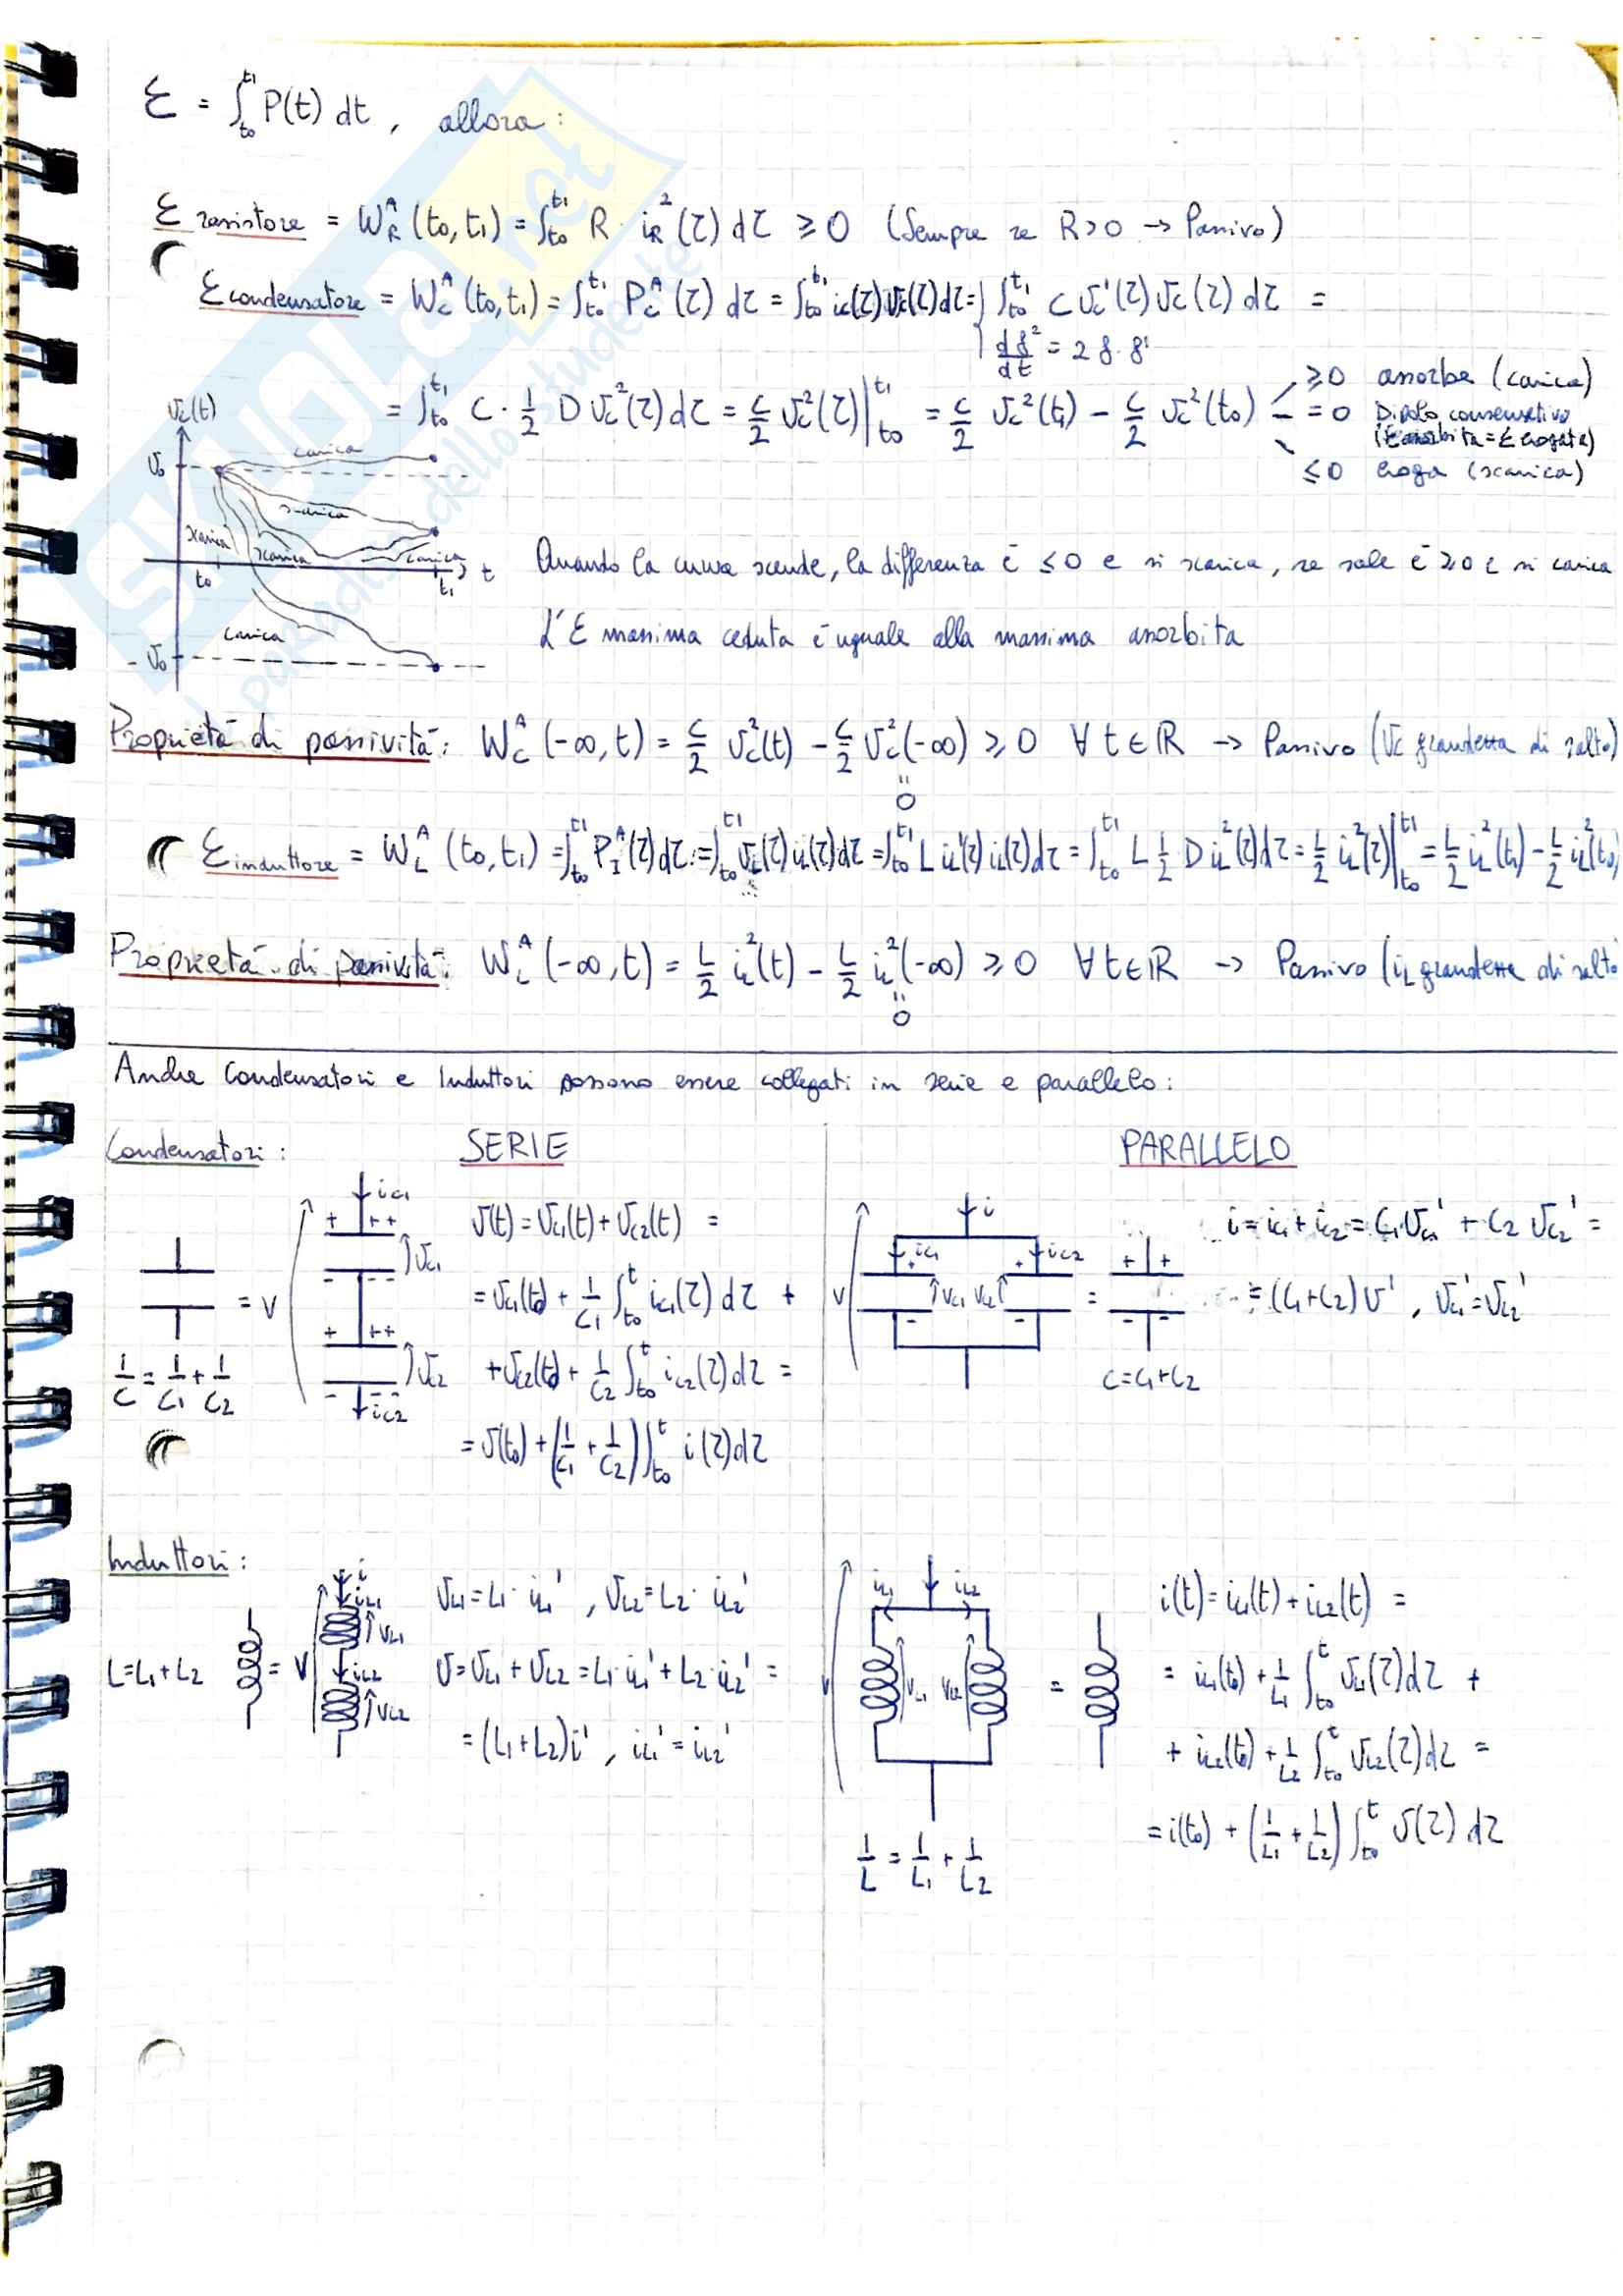 ℰ = ∫_{t0}^{t1} P(t) dt , allora :
ℰ resistore = W_R^A (t0, t1) = ∫_{t0}^{t1} R · i_R^2 (τ) dτ ≥ 0 (Sempre se R>0 → Passivo)
ℰ condensatore = W_C^A (t0, t1) = ∫_{t0}^{t1} P_C^A (τ) dτ = ∫_{t0}^{t1} ic(τ) vc(τ) dτ = ∫_{t0}^{t1} C vc'(τ) vc(τ) dτ =
df²/dt = 2 f · f'
= ∫_{t0}^{t1} C · 1/2 D vc²(τ) dτ = C/2 vc²(τ)|_{t0}^{t1} = C/2 vc²(t1) − C/2 vc²(t0)
≥0 assorbe (carica)
=0 Dipolo conservativo
(ℰ assorbita = ℰ erogata)
≤0 eroga (scarica)
vc(t)
v0
carica
scarica
scarica
scarica
carica
t0
t1
t
carica
-v0
Quando la curva scende, la differenza è ≤0 e si scarica, se sale è ≥0 e si carica
L'ℰ massima ceduta è uguale alla massima assorbita
Proprietà di passività: W_C^A (-∞, t) = C/2 vc²(t) − C/2 vc²(-∞) ≥ 0 ∀ t ∈ ℝ → Passivo (vc grandezza di salto)
0
ℰ induttore = W_L^A (t0, t1) = ∫_{t0}^{t1} P_I^A(τ) dτ = ∫_{t0}^{t1} vL(τ) iL(τ) dτ = ∫_{t0}^{t1} L iL'(τ) iL(τ) dτ = ∫_{t0}^{t1} L 1/2 D iL²(τ) dτ = L/2 iL²(τ)|_{t0}^{t1} = L/2 iL²(t1) − L/2 iL²(t0)
Proprietà di passività: W_L^A (-∞, t) = L/2 iL²(t) − L/2 iL²(-∞) ≥ 0 ∀ t ∈ ℝ → Passivo (iL grandezza di salto
0
Anche Condensatori e Induttori possono essere collegati in serie e parallelo :
Condensatori :
SERIE
PARALLELO
= V
1/C = 1/C1 + 1/C2
ic1
+ ++
vc1
- --
+ ++
vc2
- --
ic2
v(t) = vc1(t) + vc2(t) =
= vc1(t0) + 1/C1 ∫_{t0}^{t} ic1(τ) dτ +
+ vc2(t0) + 1/C2 ∫_{t0}^{t} ic2(τ) dτ =
= v(t0) + (1/C1 + 1/C2) ∫_{t0}^{t} i(τ) dτ
V
i
ic1
ic2
+ +
vc1 vc2
- -
=
+ +
- -
C = C1 + C2
i = ic1 + ic2 = C1 vc1' + C2 vc2' =
= (C1 + C2) v' , vc1' = vc2'
Induttori :
L = L1 + L2
= V
i
iL1
VL1
iL2
VL2
vL1 = L1 · iL1' , vL2 = L2 · iL2'
v = vL1 + vL2 = L1 · iL1' + L2 · iL2' =
= (L1 + L2) i' , iL1' = iL2'
V
iL1
iL2
VL1
VL2
=
1/L = 1/L1 + 1/L2
i(t) = iL1(t) + iL2(t) =
= iL1(t0) + 1/L1 ∫_{t0}^{t} vL1(τ) dτ +
+ iL2(t0) + 1/L2 ∫_{t0}^{t} vL2(τ) dτ =
= i(t0) + (1/L1 + 1/L2) ∫_{t0}^{t} v(τ) dτ
SKUOLA.net
paradiso dello studente